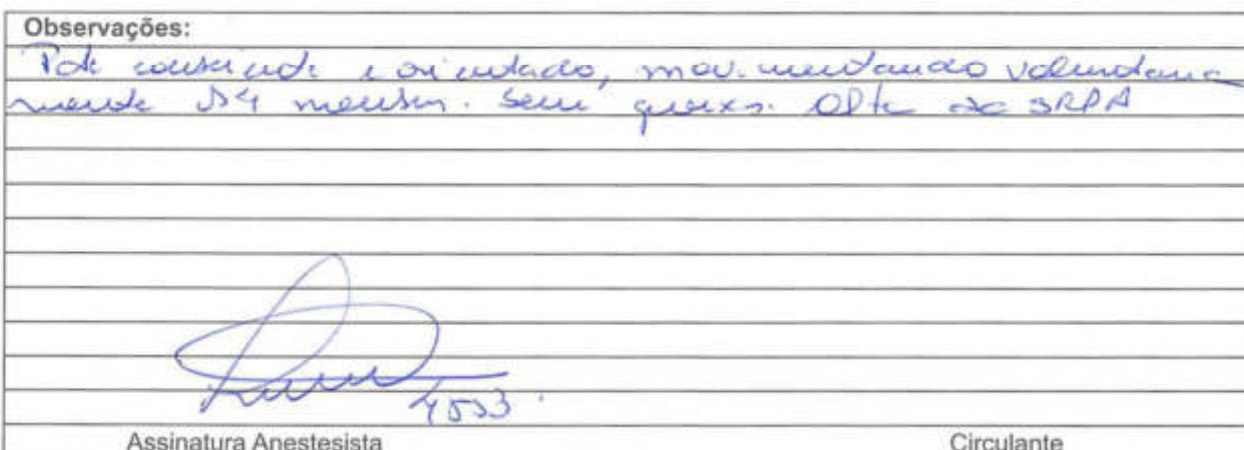 Observações:
Pcte consciente e orientado, movimentando voluntaria
mente os 4 membros. Sem queixas. Alta da SRPA
Assinatura Anestesista Circulante